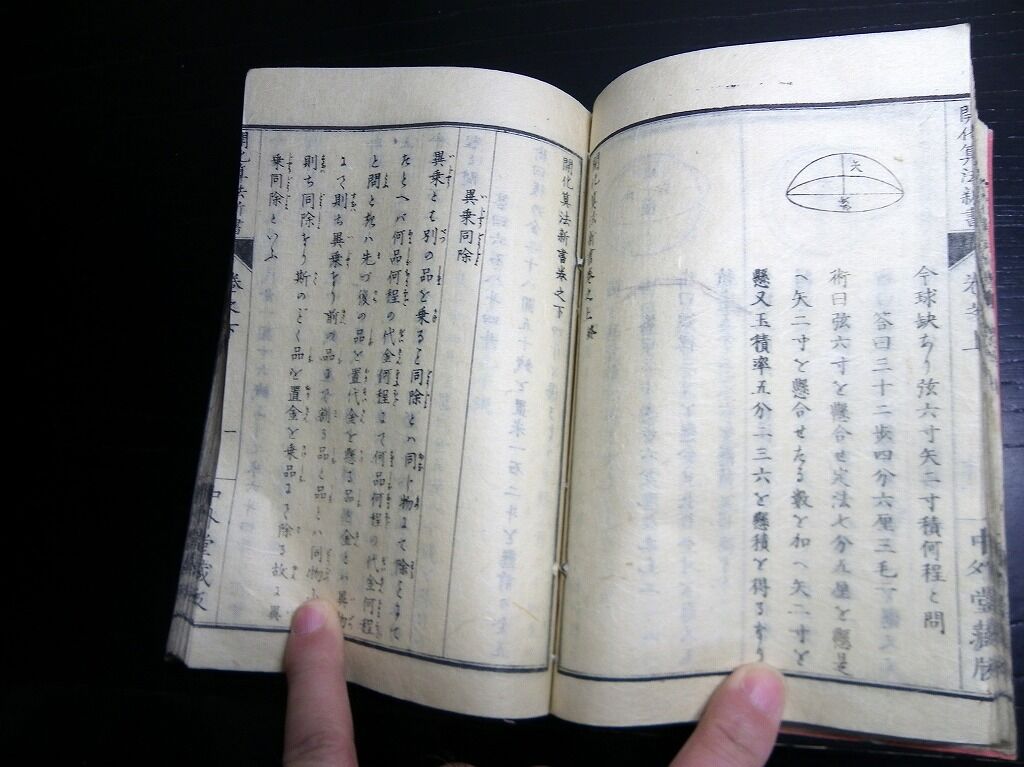 開化算法新書
卷之上
中外堂藏版
矢
弦
今球缺あり弦六寸矢二寸積何程と問
答曰三十二歩四分六厘三毛
術曰弦六寸と懸合せ定法七分五厘を懸是
へ矢二寸と懸合せたる数を加へ矢二寸を
懸又玉積率五分二三六を懸積を得るなり
開化算法新書卷之上終
開化算法新書卷之下
異乗同除
異乗とは別の品を乗るを同除とハ同ト物にて除をまて
たとヘバ何品何程の代金何程にて何品何程の代金何程
と問とき ハ先づ後の品を置代金を懸る品と金とハ異物
にて則ち異乗なり前の品にて割る品と品とハ同物
則ち同除なり斯のごく品を置金を乗品にて除る故に異
乗同除といふ
開化算法新書
卷之下
一
中外堂藏版